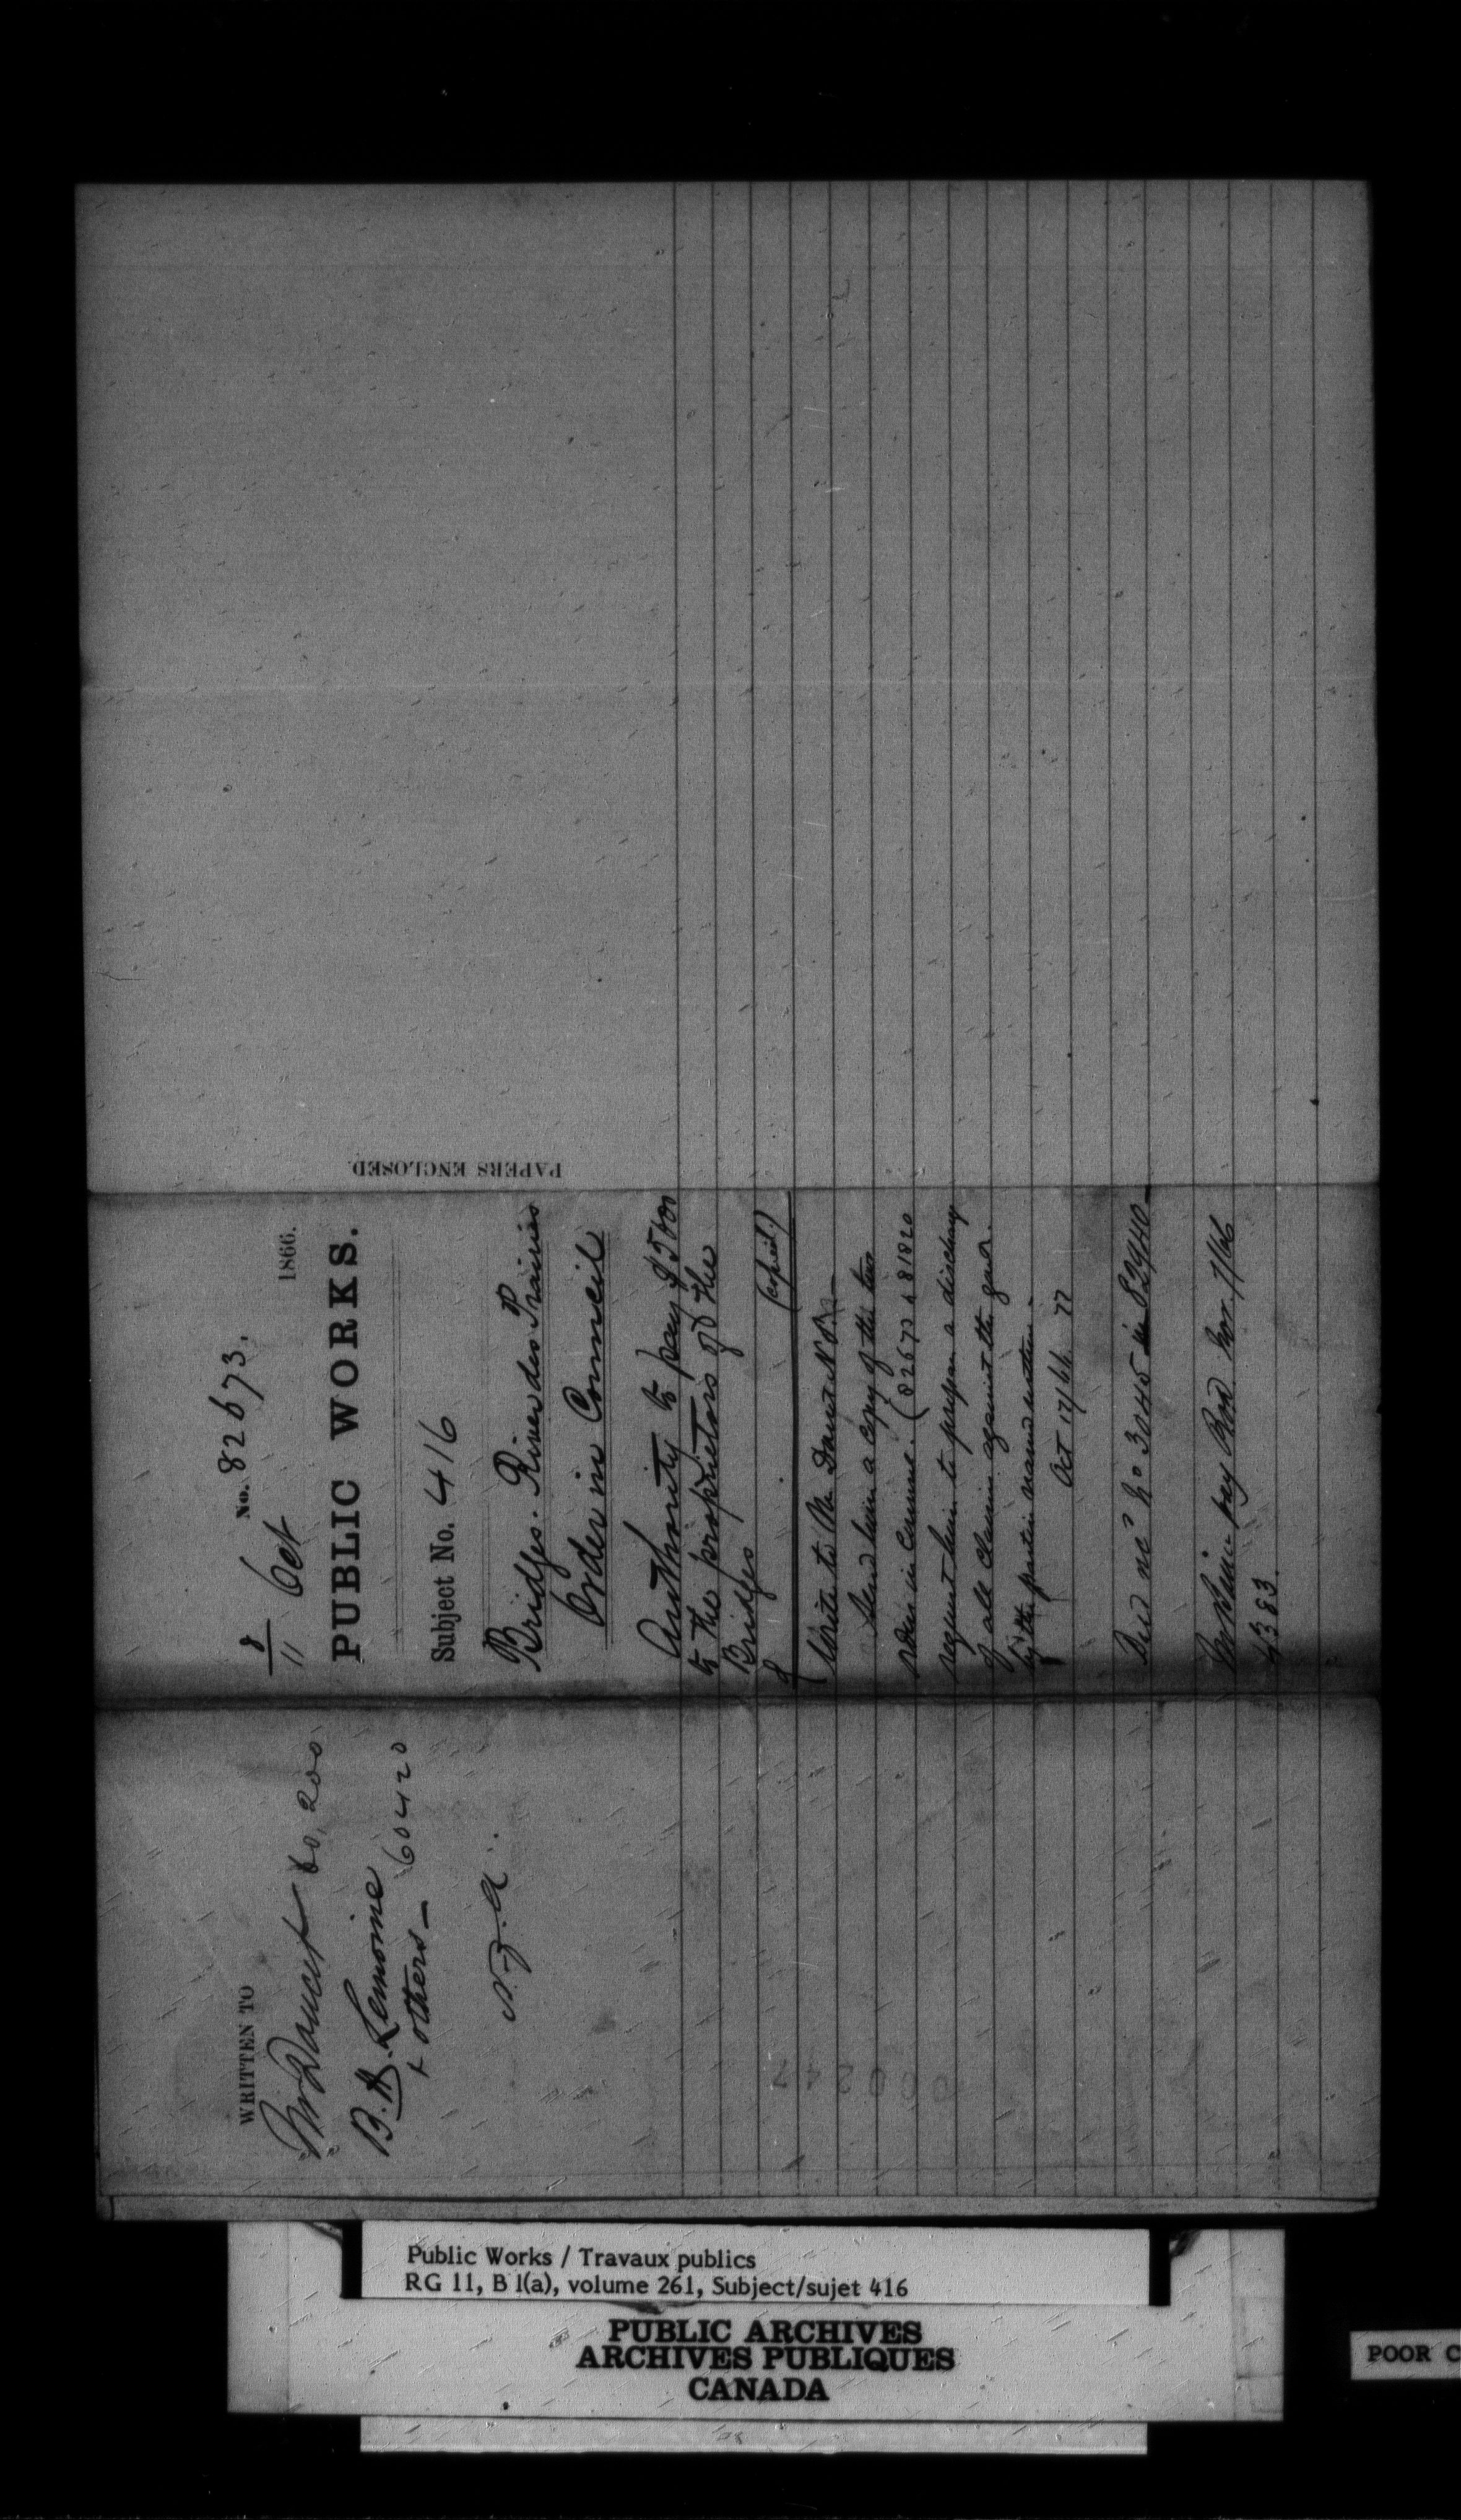 No. 82673.
8/11 Oct 1866.
PUBLIC WORKS.
Subject No. 416
Bridges. River des Prairies
Order in Council
Authority to pay $5000
to the proprietors of the
Bridges
(copied.)
Write to Mr. Doucet N.P. —
Send him a copy of the two
orders in Council. (82673 & 81820
request him to prepare a discharge
of all claims against the govr.
by the parties named within —
Oct 17/66.
Deed No. 3045 in 82940
pay Nov. 7/66
4383.
WRITTEN TO
Mr Doucet 60,200
B. H. Lemoine 60420
& others —
PAPERS ENCLOSED.
000247
Public Works / Travaux publics
RG 11, B 1(a), volume 261, Subject/sujet 416
PUBLIC ARCHIVES
ARCHIVES PUBLIQUES
CANADA
POOR C